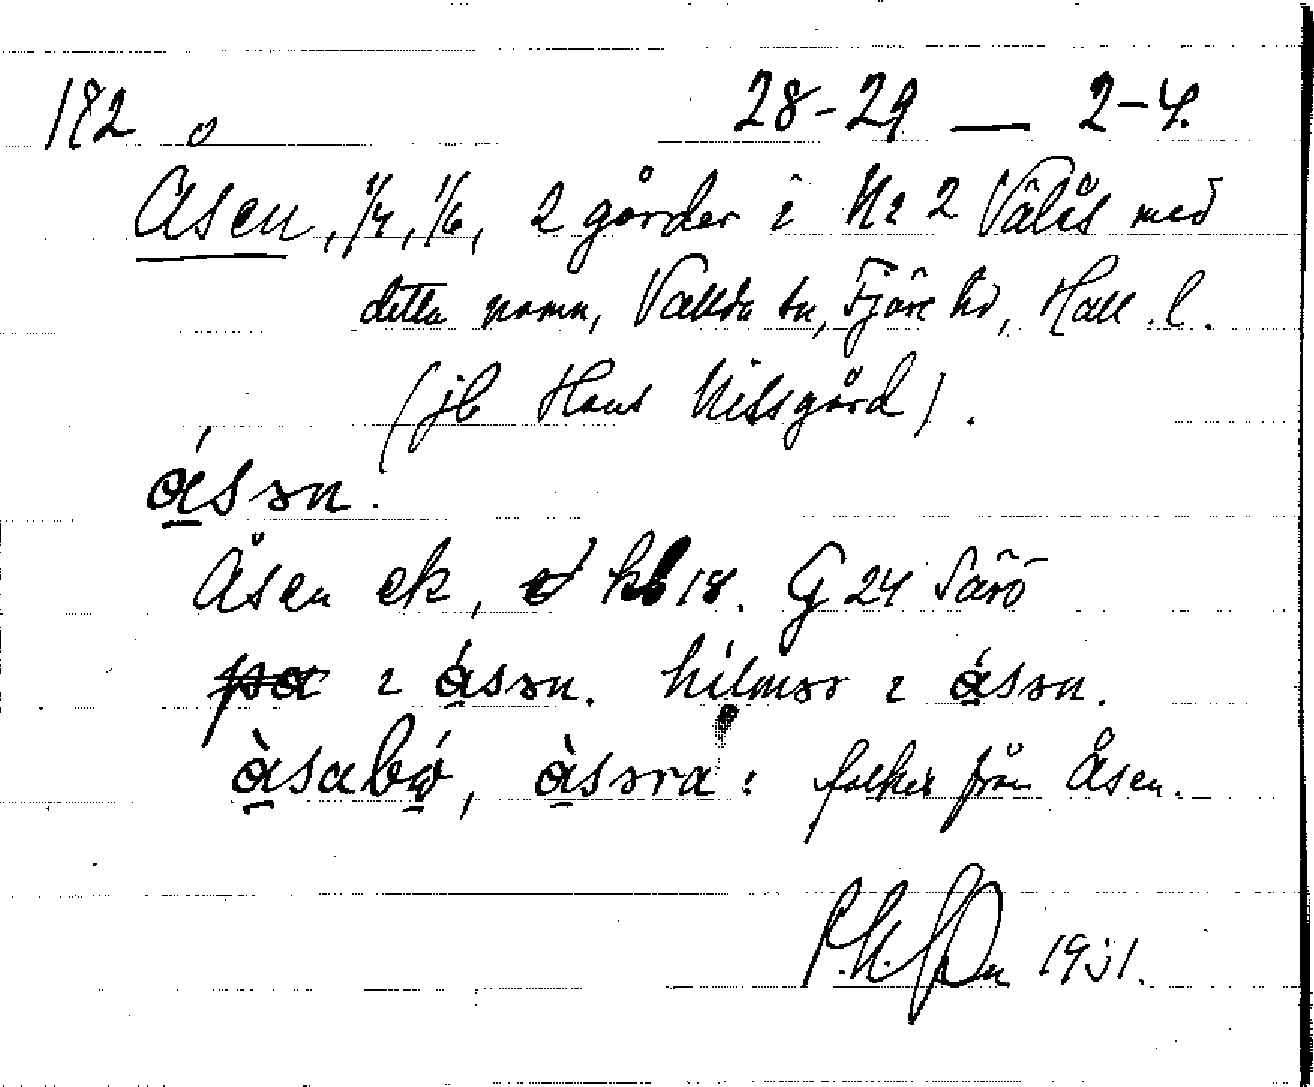 182 28-29 — 2-4.
Åsen, 1/4, 1/6, 2 gårder i Nr 2 Vålås med
detta namn, Vallda sn, Fjäre hd, Hall. l.
(jb Hans Nilsgård).
ásən.
Åsen ek, kb 18. G 24 Särö
i ásən. hilmər i ásən.
àsabø, àsəra: folket från Åsen.
1931.